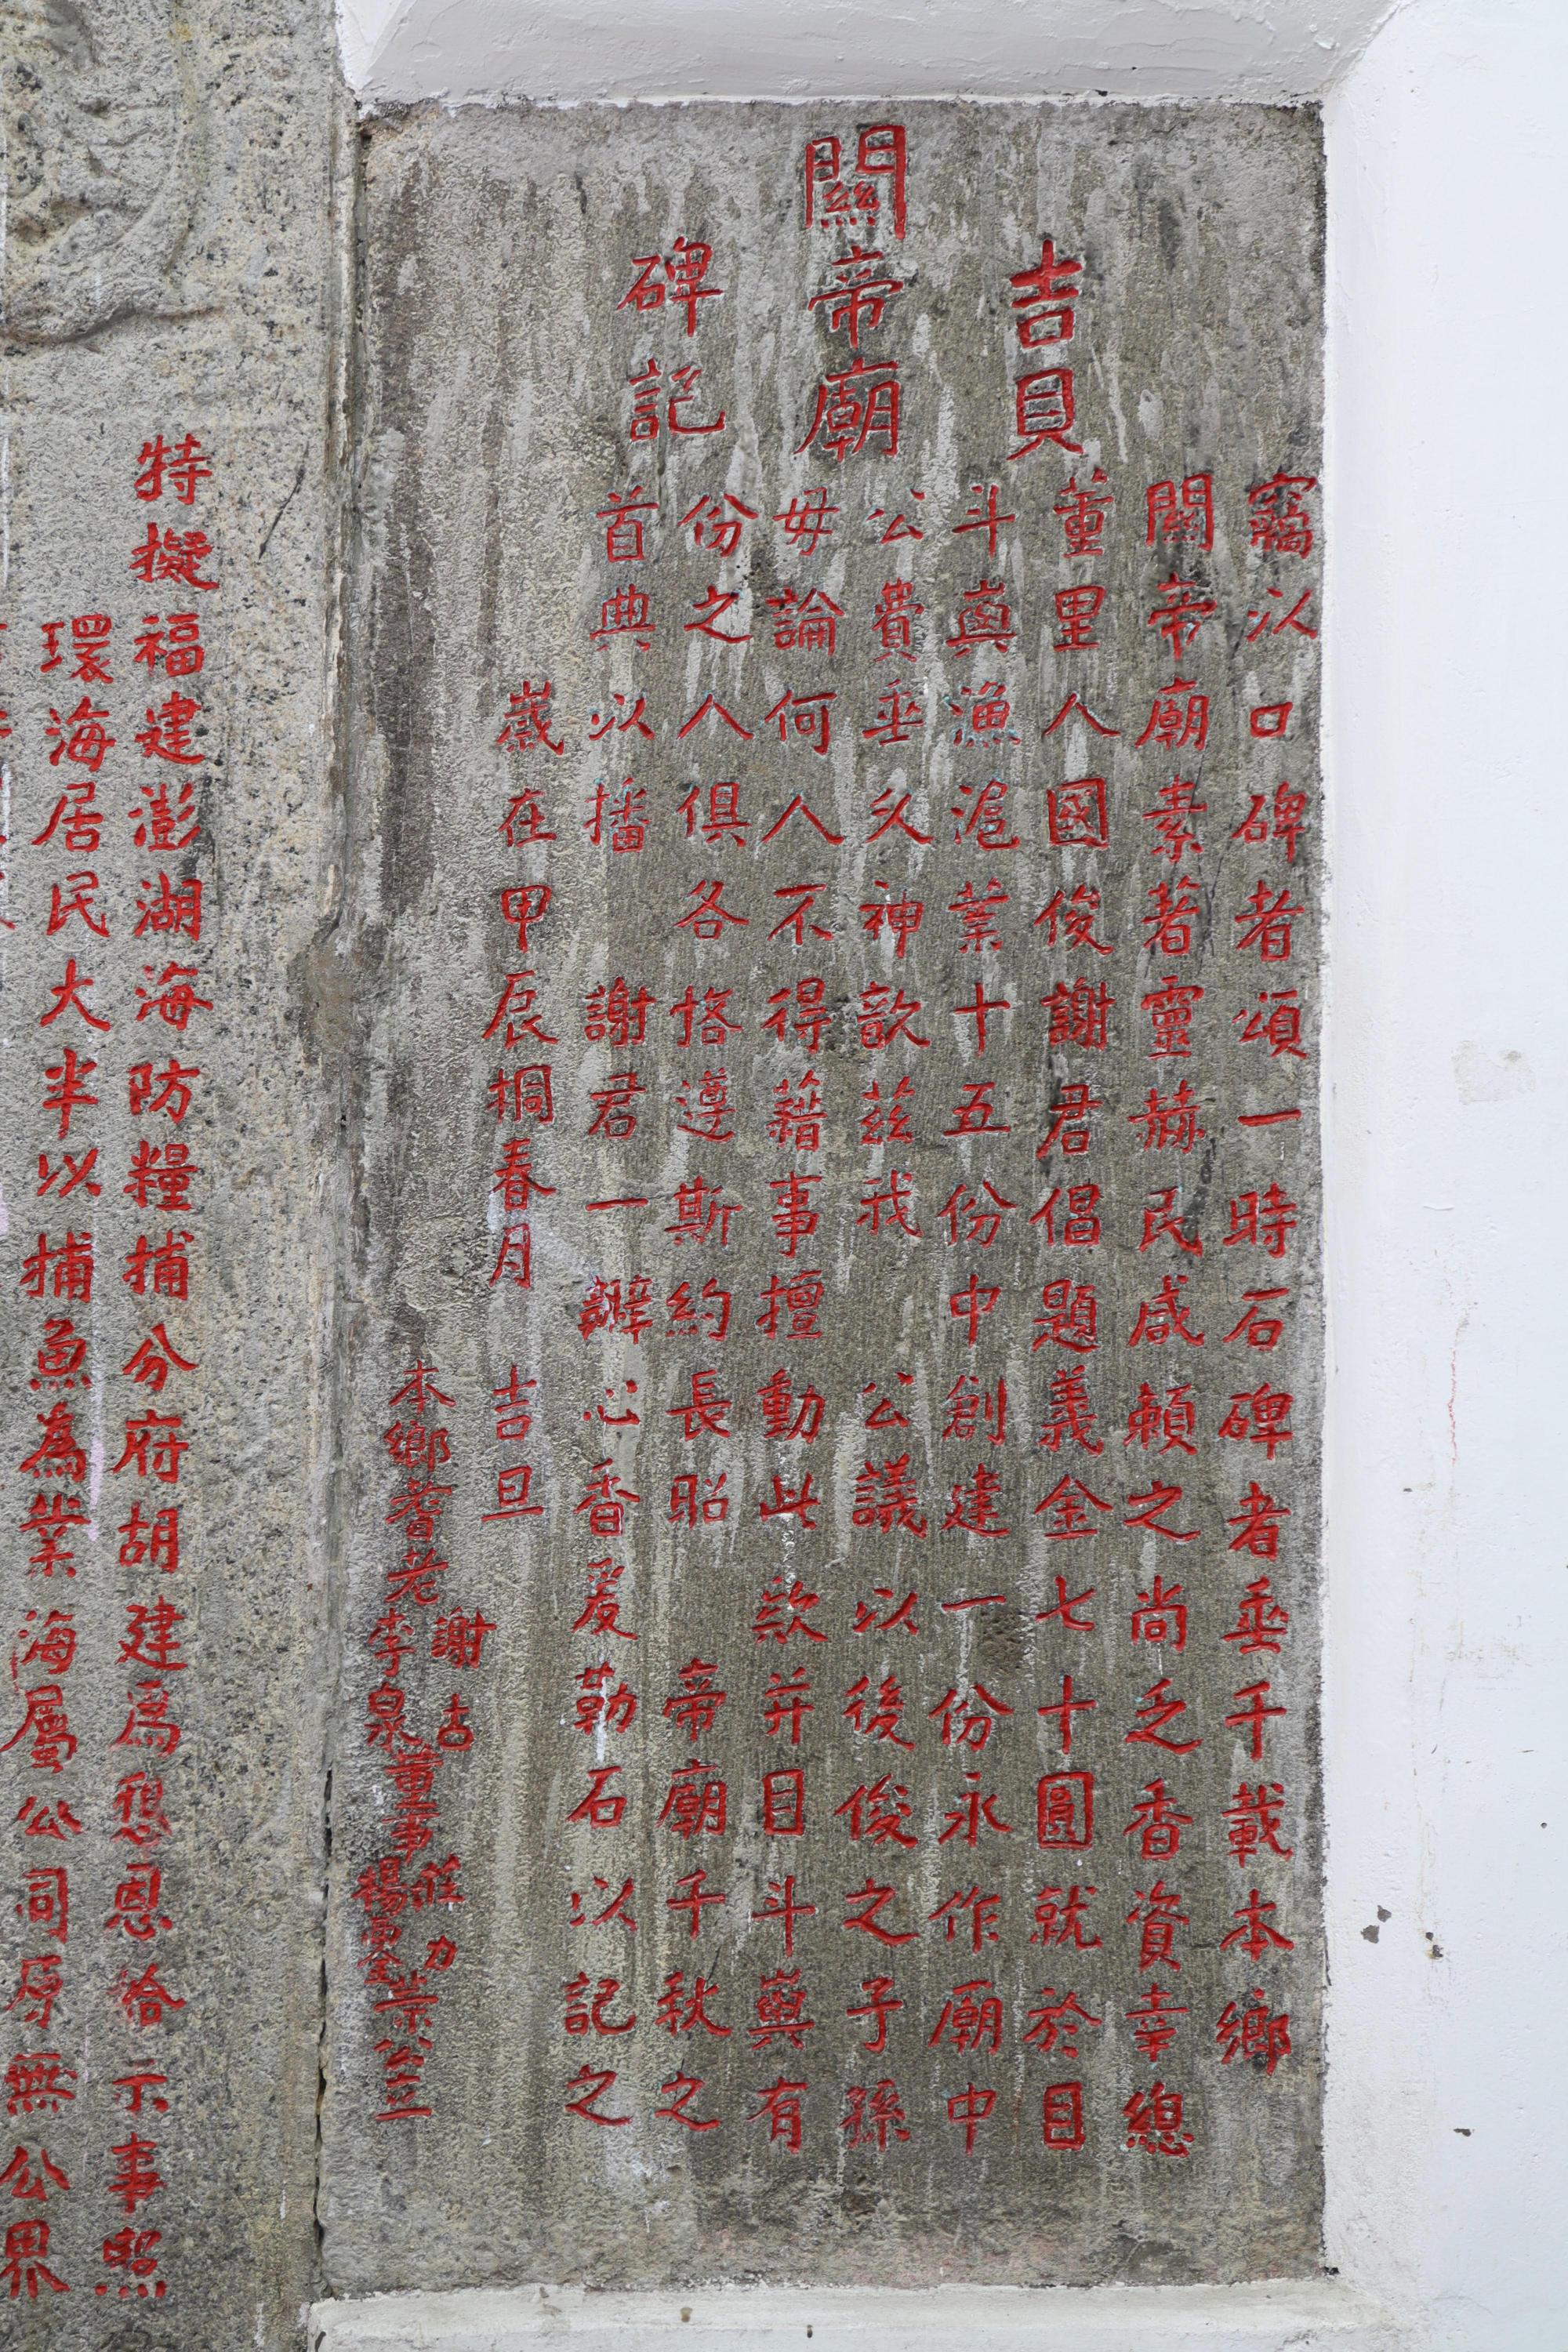 吉貝
關帝廟
碑記
竊以口碑者頌一時石碑者垂千載本鄉
關帝廟素著靈赫民咸賴之尚乏香資幸總
董里人國俊謝君倡題義金七十圓就於目
斗嶼漁滬業十五份中創建一份永作廟中
公費垂久神歆茲我 公議以後俊之子孫
毋論何人不得藉事擅動此款并目斗嶼有
份之人俱各恪遵斯約長昭 帝廟千秋之
首典以播 謝君一瓣心香爰勒石以記之
歲在甲辰桐春月 吉旦
本鄉耆老謝古李泉董事莊力楊
特擬福建澎湖海防糧捕分府胡建為 恩給示事照
環海居民大半以捕魚為業海屬公同原無公界